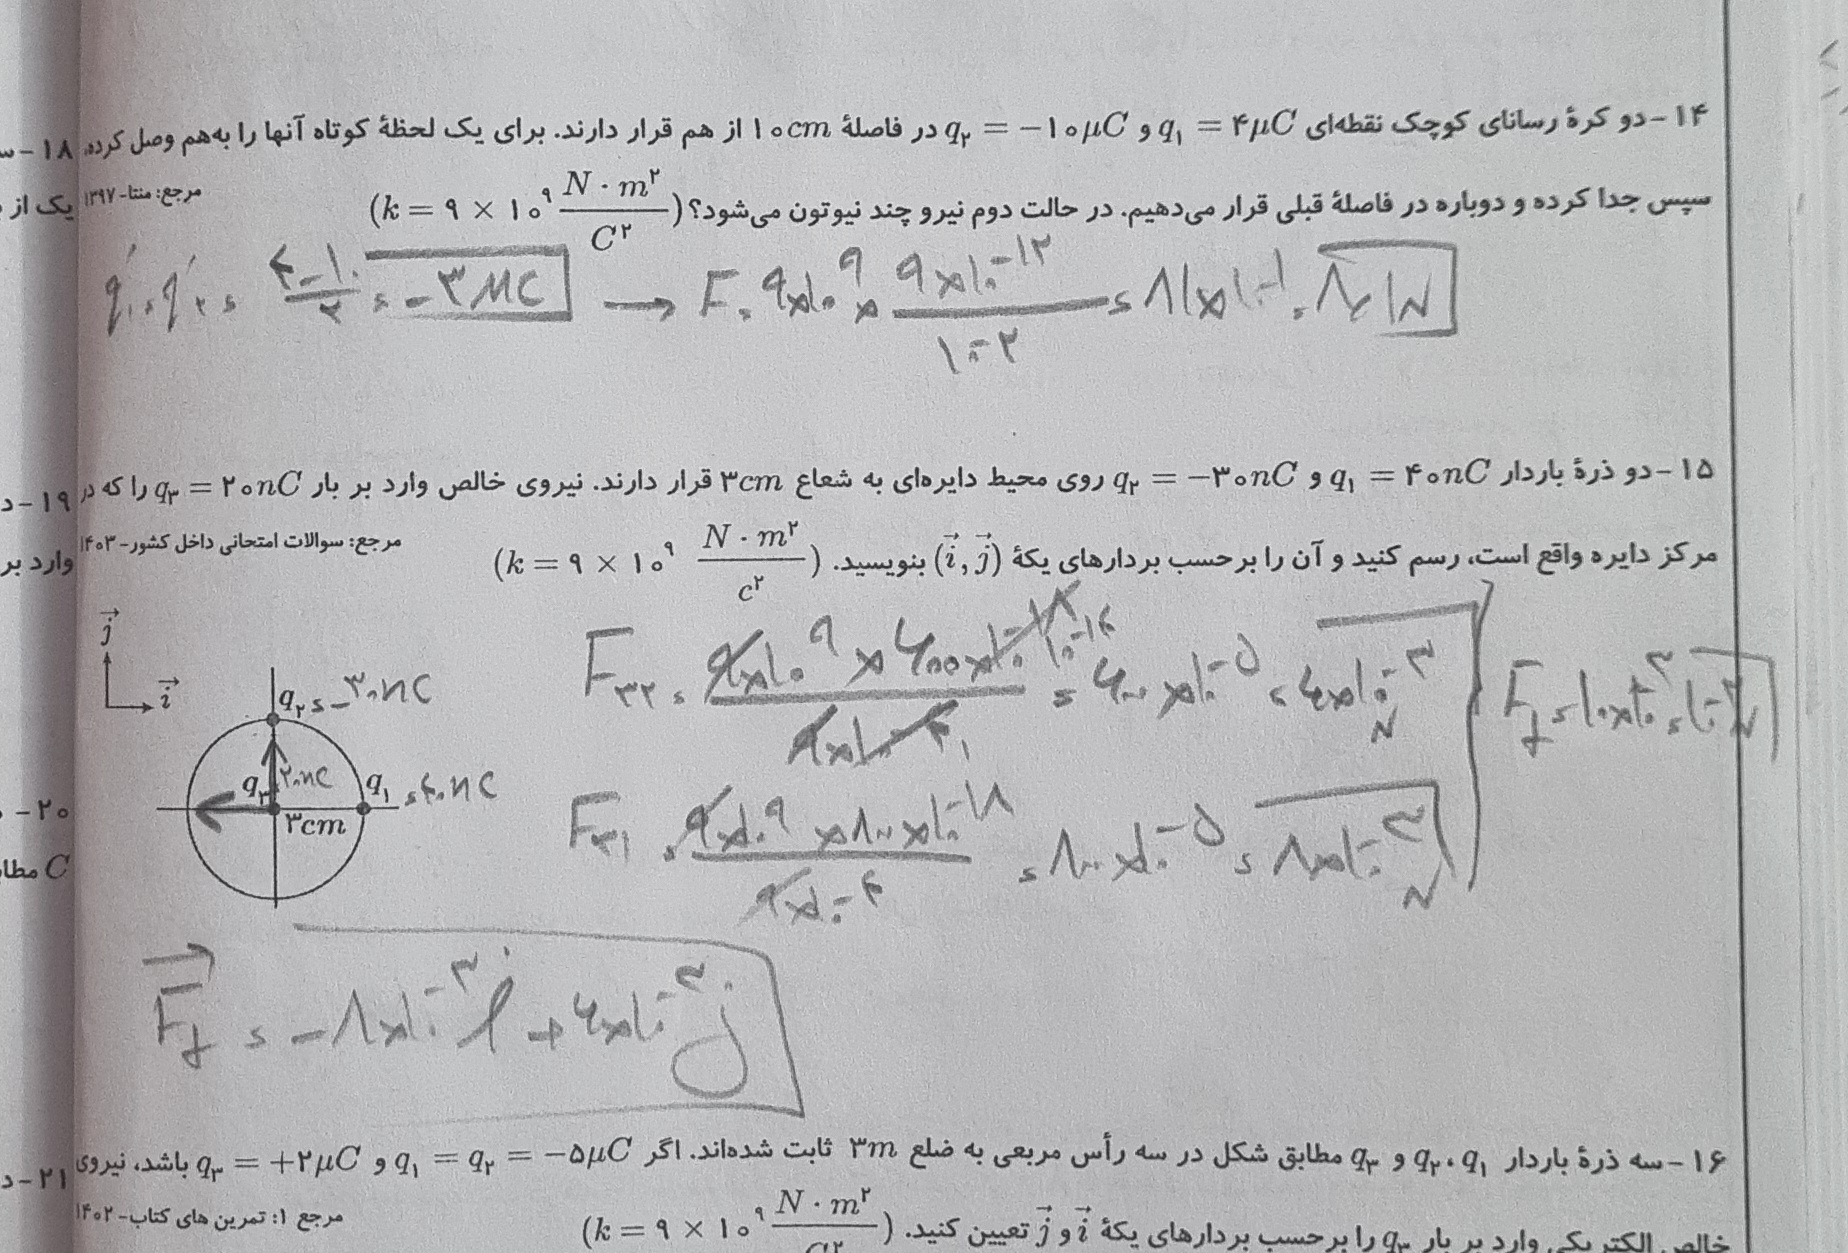 ۱۴ - دو کرهٔ رسانای کوچک نقطه‌ای q₁ = ۴μC و q₂ = −۱۰μC در فاصلهٔ ۱۰cm از هم قرار دارند. برای یک لحظهٔ کوتاه آنها را به‌هم وصل کرده،
سپس جدا کرده و دوباره در فاصلهٔ قبلی قرار می‌دهیم. در حالت دوم نیرو چند نیوتون می‌شود؟ (k = ۹ × ۱۰^۹ N·m²/C²) مرجع: منتا-۱۳۹۷
q'₁ = q'₂ = (۴−۱۰)/۲ = −۳μC → F = ۹×۱۰^۹ × (۹×۱۰^−۱۲)/(۱۰^−۲) = ۸۱×۱۰^−۱ = ۸٫۱N
۱۵ - دو ذرهٔ باردار q₁ = ۴۰nC و q₂ = −۳۰nC روی محیط دایره‌ای به شعاع ۳cm قرار دارند. نیروی خالص وارد بر بار q₃ = ۲۰nC را که در
مرکز دایره واقع است، رسم کنید و آن را برحسب بردارهای یکهٔ (i⃗, j⃗) بنویسید. (k = ۹ × ۱۰^۹ N·m²/c²) مرجع: سوالات امتحانی داخل کشور-۱۴۰۳
j⃗
i⃗
q₂ = −۳۰nC
q₃ ۲۰nC
q₁ = ۴۰nC
۳cm
F₃₂ = (۹×۱۰^۹ × ۶۰۰×۱۰^−۱۸)/(۹×۱۰^−۴) = ۶۰۰×۱۰^−۵ = ۶×۱۰^−۳ N
F₃₁ = (۹×۱۰^۹ × ۸۰۰×۱۰^−۱۸)/(۹×۱۰^−۴) = ۸۰۰×۱۰^−۵ = ۸×۱۰^−۳ N
F_T = ۱۰×۱۰^−۳ = ۱۰^−۲ N
F⃗_T = −۸×۱۰^−۳ i + ۶×۱۰^−۳ j
۱۶ - سه ذرهٔ باردار q₁، q₂ و q₃ مطابق شکل در سه رأس مربعی به ضلع ۳m ثابت شده‌اند. اگر q₁ = q₂ = −۵μC و q₃ = +۲μC باشد، نیروی
خالص الکتریکی وارد بر بار q₃ را برحسب بردارهای یکهٔ i⃗ و j⃗ تعیین کنید. (k = ۹ × ۱۰^۹ N·m²/C²) مرجع ۱: تمرین های کتاب-۱۴۰۲
۱۸ -
یک از
۱۹ - د
وارد بر
۲۰ -
C مطا
۲۱ - د